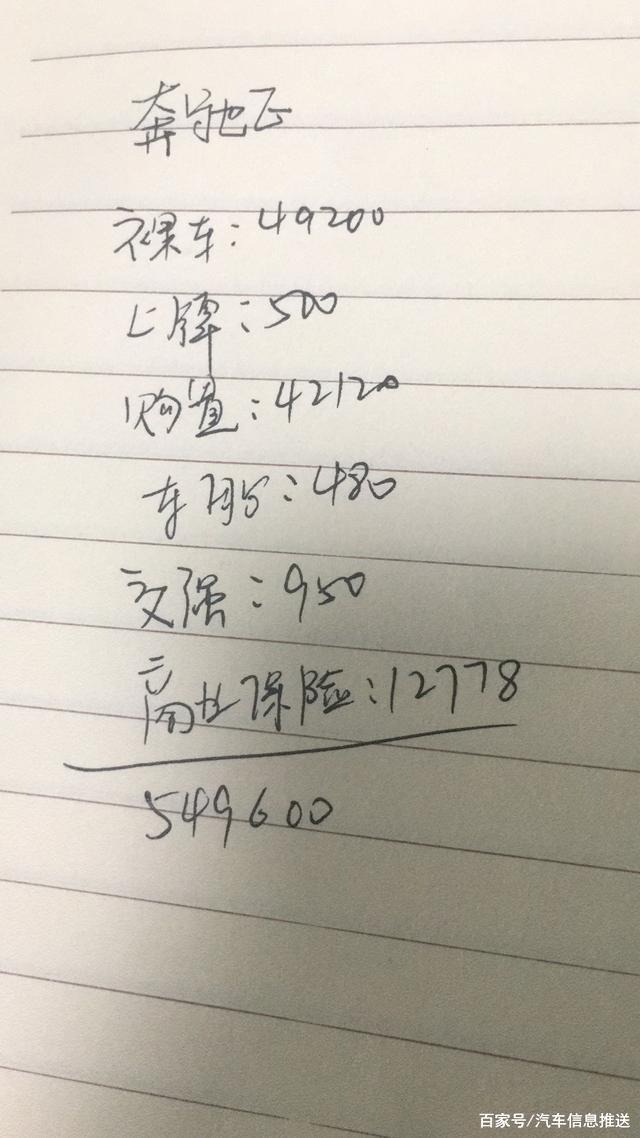 奔驰E
裸车：49200
上牌：500
购置：42120
车船：480
交强：950
商业保险：12778
549600
百家号/汽车信息推送